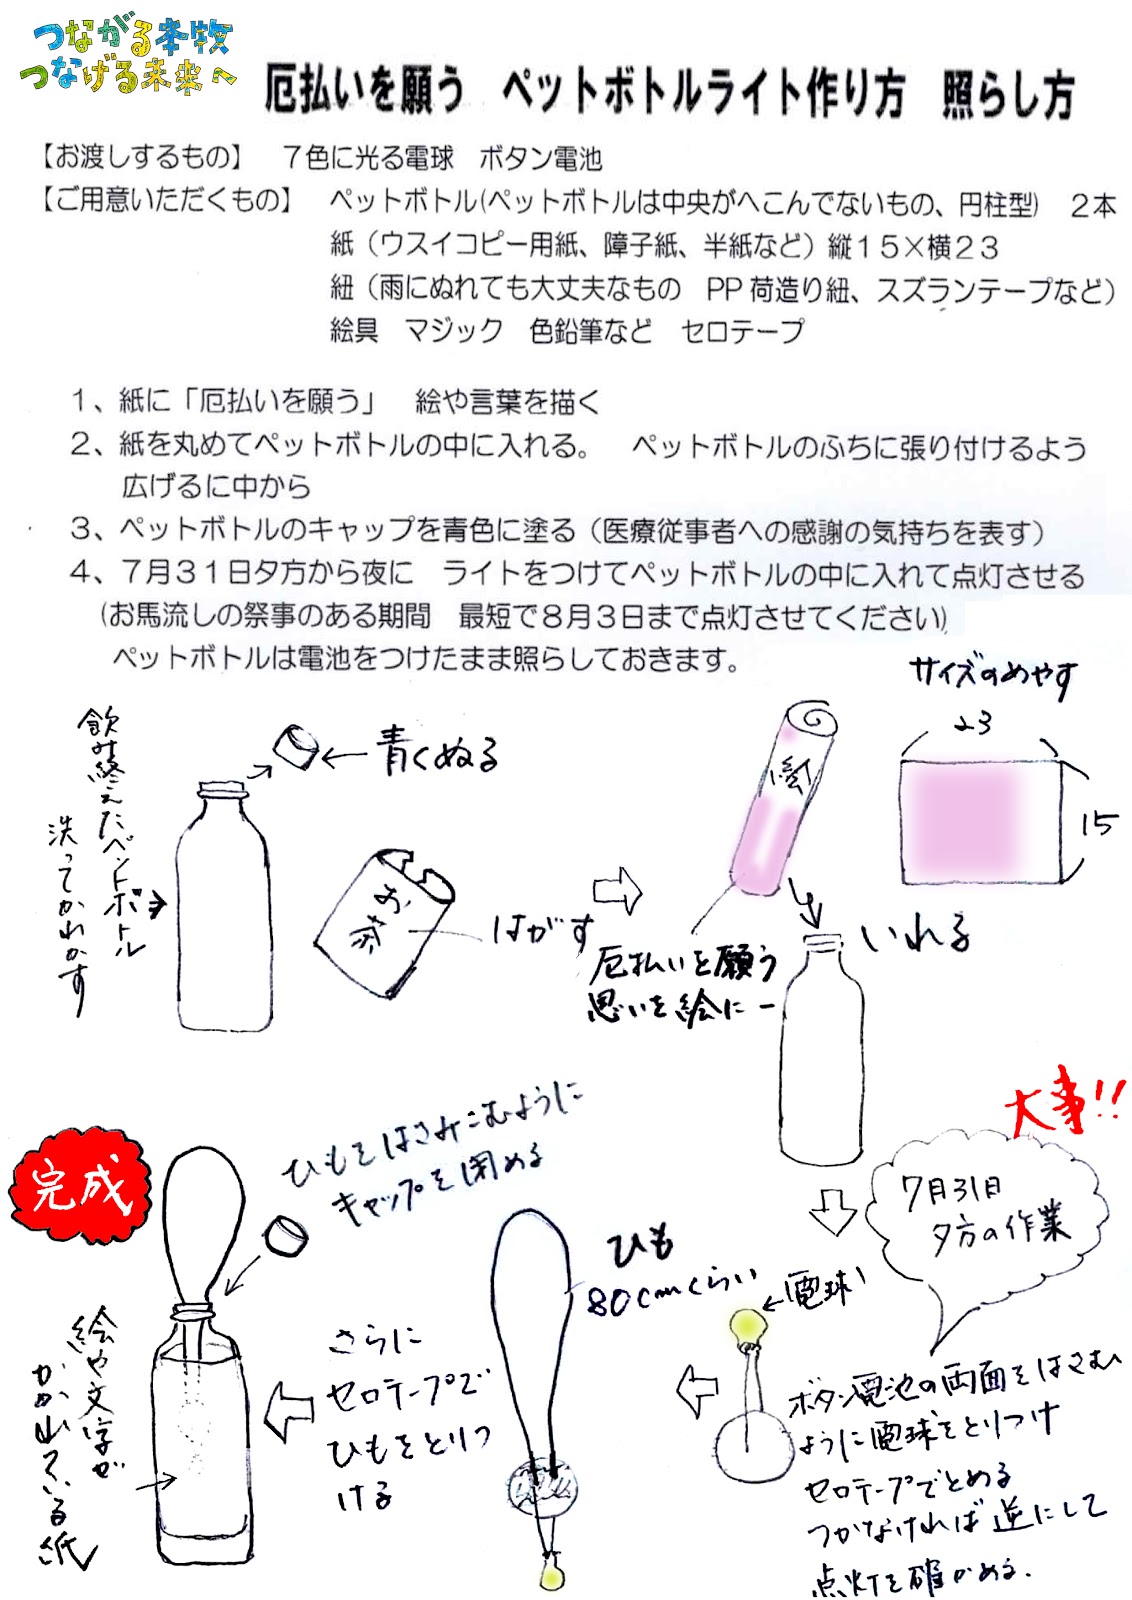 つながる本牧
つなげる未来へ
厄払いを願う　ペットボトルライト作り方　照らし方
【お渡しするもの】　７色に光る電球　ボタン電池
【ご用意いただくもの】　ペットボトル(ペットボトルは中央がへこんでないもの、円柱型)　２本
紙（ウスイコピー用紙、障子紙、半紙など）縦１５×横２３
紐（雨にぬれても大丈夫なもの　PP荷造り紐、スズランテープなど）
絵具　マジック　色鉛筆など　セロテープ
１、紙に「厄払いを願う」　絵や言葉を描く
２、紙を丸めてペットボトルの中に入れる。　ペットボトルのふちに張り付けるよう
広げるに中から
３、ペットボトルのキャップを青色に塗る（医療従事者への感謝の気持ちを表す）
４、７月３１日夕方から夜に　ライトをつけてペットボトルの中に入れて点灯させる
(お馬流しの祭事のある期間　最短で８月３日まで点灯させてください)
ペットボトルは電池をつけたまま照らしておきます。
飲み終えたペットボトル
洗ってかわかす
青くぬる
お茶
はがす
絵
厄払いを願う
思いを絵にー
いれる
サイズのめやす
23
15
大事!!
7月31日
夕方の作業
電球
ボタン電池の両面をはさむ
ように電球をとりつけ
セロテープでとめる
つかなければ逆にして
点灯を確かめる.
ひも
80cmくらい
さらに
セロテープで
ひもをとりつ
ける
ひもをはさみこむように
キャップを閉める
完成
絵や文字が
かかれている紙